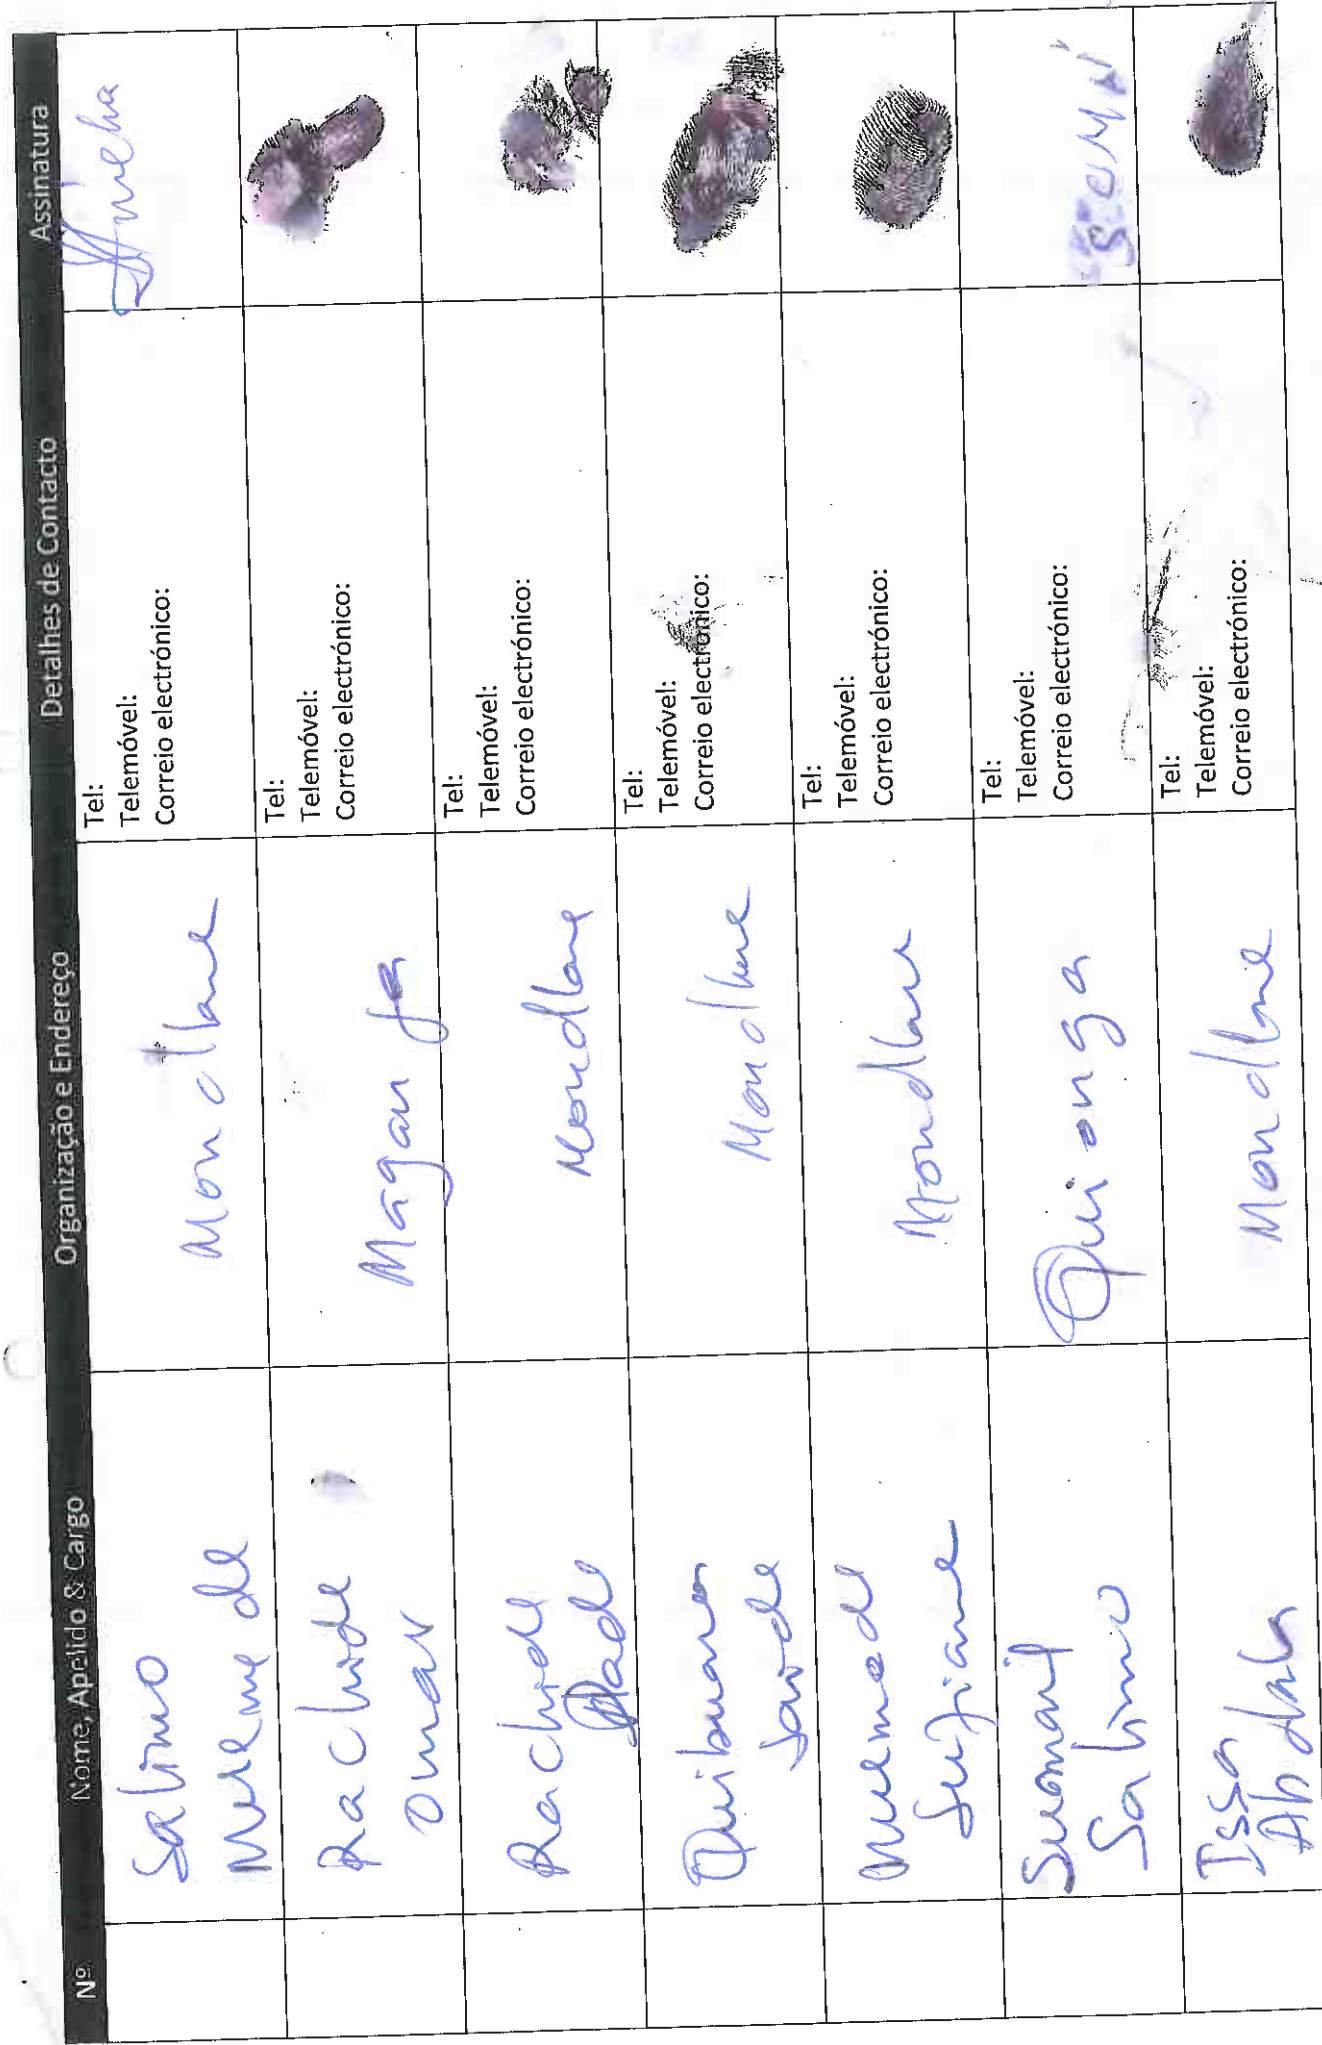 Nº Nome, Apelido & Cargo Organização e Endereço Detalhes de Contacto Assinatura
Salimo
Muemede
Mondlane
Tel:
Telemóvel:
Correio electrónico:
Rachide
Omar
Maganja
Tel:
Telemóvel:
Correio electrónico:
Rachide
Mondlane
Tel:
Telemóvel:
Correio electrónico:
Quibuana
Saide
Mondlane
Tel:
Telemóvel:
Correio electrónico:
Muemede
Sufiane
Mondlane
Tel:
Telemóvel:
Correio electrónico:
Suomani
Salimo
Quionga
Tel:
Telemóvel:
Correio electrónico:
Issa
Abdala
Mondlane
Tel:
Telemóvel:
Correio electrónico: